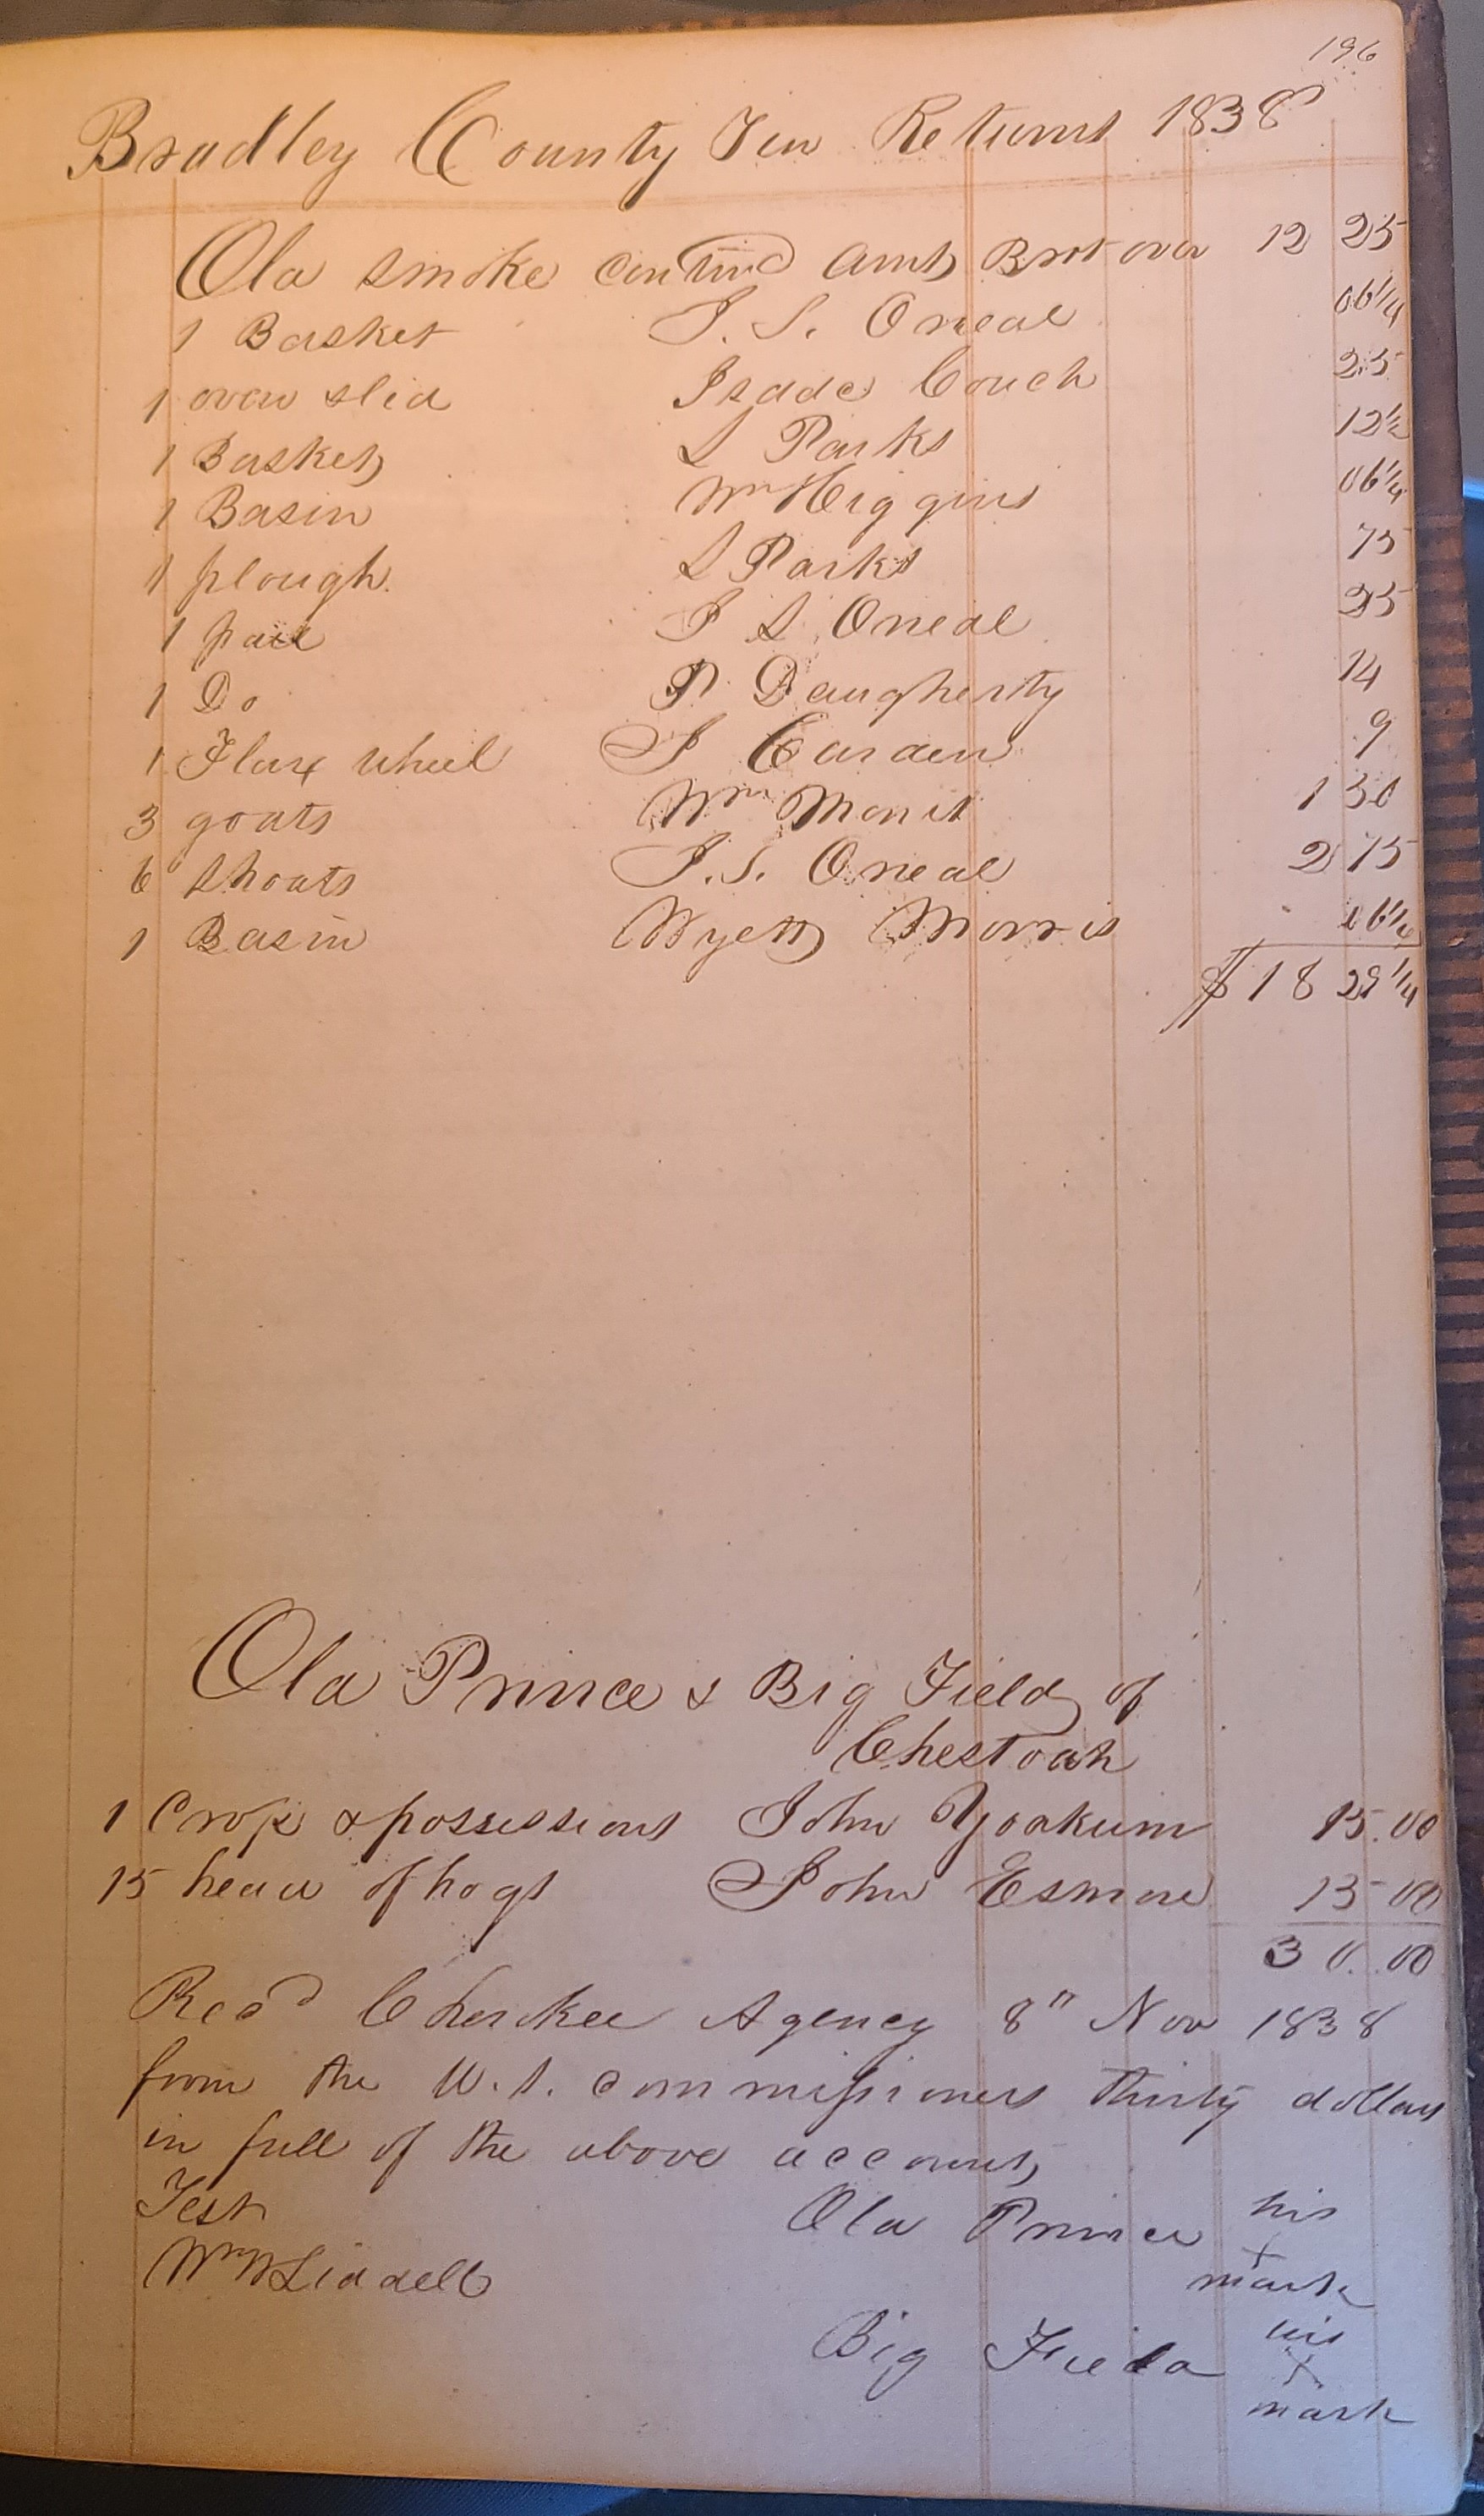 196
Bradley County Ten Returns 1838
Old Smoke Contind Amt Brot over 12 25
1 Basket J. S. Oneal 06 1/4
1 oven & lid Isaac Couch 25
1 Basket S Parks 12 1/2
1 Basin Wm Higgins 06 1/4
1 plough S Parks 75
1 pail J S Oneal 25
1 Do P Daugherty 14
1 Flax wheel J Carden 9
3 goats Wm 1 30
6 shoats J. S. Oneal 2 75
1 Basin Wyett Morris 06 1/4
$18 29 1/4
Old Prince & Big Field of
Chestoah
1 Crop & possessions John Yoakum 15.00
15 head of hogs John 15 00
30.00
Recd Cherokee Agency 8" Nov 1838
from the U.S. commissioners thirty dollars
in full of the above account
Test Old Prince his
x
Wm W Liddell mark
Big Field his
x
mark